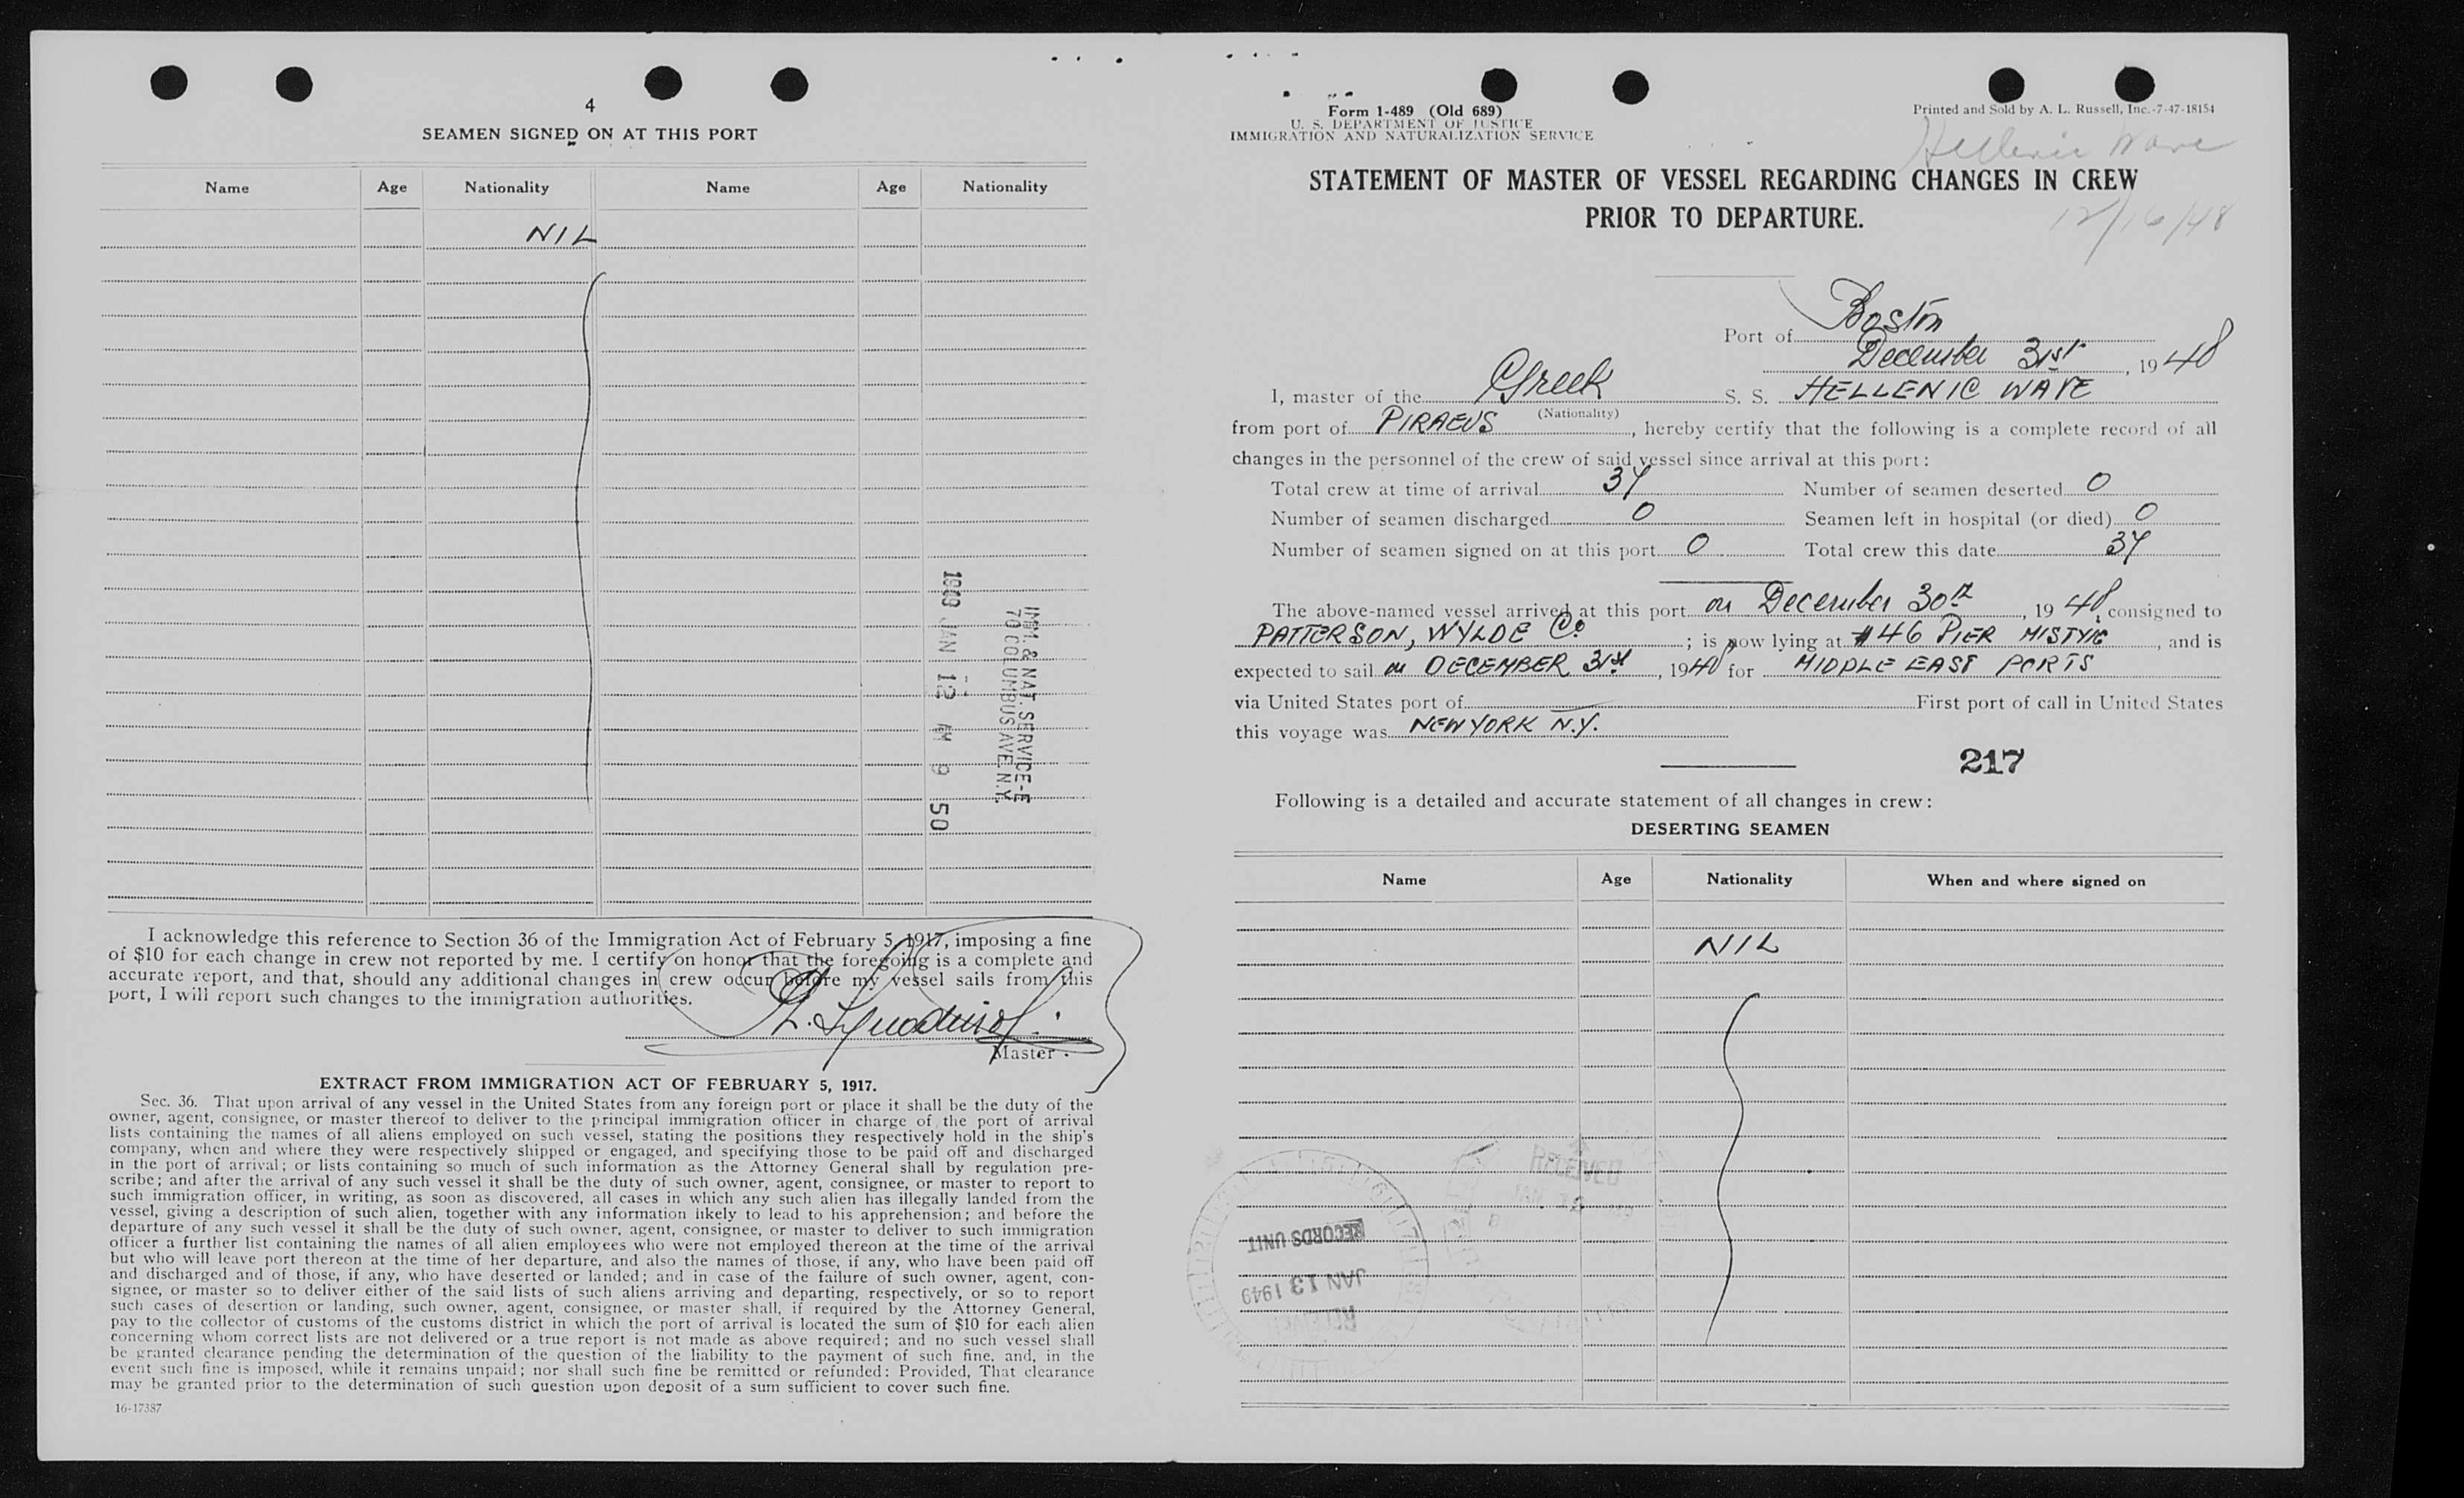 4
SEAMEN SIGNED ON AT THIS PORT
Name Age Nationality Name Age Nationality
NIL
IMM. & NAT. SERVICE-E
70 COLUMBUS AVE. N.Y.
1949 JAN 12 AM 9 50
I acknowledge this reference to Section 36 of the Immigration Act of February 5, 1917, imposing a fine
of $10 for each change in crew not reported by me. I certify on honor that the foregoing is a complete and
accurate report, and that, should any additional changes in crew occur before my vessel sails from this
port, I will report such changes to the immigration authorities.
Master.
EXTRACT FROM IMMIGRATION ACT OF FEBRUARY 5, 1917.
Sec. 36. That upon arrival of any vessel in the United States from any foreign port or place it shall be the duty of the
owner, agent, consignee, or master thereof to deliver to the principal immigration officer in charge of the port of arrival
lists containing the names of all aliens employed on such vessel, stating the positions they respectively hold in the ship's
company, when and where they were respectively shipped or engaged, and specifying those to be paid off and discharged
in the port of arrival; or lists containing so much of such information as the Attorney General shall by regulation pre-
scribe; and after the arrival of any such vessel it shall be the duty of such owner, agent, consignee, or master to report to
such immigration officer, in writing, as soon as discovered, all cases in which any such alien has illegally landed from the
vessel, giving a description of such alien, together with any information likely to lead to his apprehension; and before the
departure of any such vessel it shall be the duty of such owner, agent, consignee, or master to deliver to such immigration
officer a further list containing the names of all alien employees who were not employed thereon at the time of the arrival
but who will leave port thereon at the time of her departure, and also the names of those, if any, who have been paid off
and discharged and of those, if any, who have deserted or landed; and in case of the failure of such owner, agent, con-
signee, or master so to deliver either of the said lists of such aliens arriving and departing, respectively, or so to report
such cases of desertion or landing, such owner, agent, consignee, or master shall, if required by the Attorney General,
pay to the collector of customs of the customs district in which the port of arrival is located the sum of $10 for each alien
concerning whom correct lists are not delivered or a true report is not made as above required; and no such vessel shall
be granted clearance pending the determination of the question of the liability to the payment of such fine, and, in the
event such fine is imposed, while it remains unpaid; nor shall such fine be remitted or refunded: Provided, That clearance
may be granted prior to the determination of such question upon deposit of a sum sufficient to cover such fine.
16-17387
Form 1-489 (Old 689)
U. S. DEPARTMENT OF JUSTICE
IMMIGRATION AND NATURALIZATION SERVICE
Printed and Sold by A. L. Russell, Inc.-7-47-18154
Hellenic Wave
STATEMENT OF MASTER OF VESSEL REGARDING CHANGES IN CREW
PRIOR TO DEPARTURE.
12/16/48
Port of Boston
December 31st, 1948
I, master of the Greek S. S. HELLENIC WAVE
(Nationality)
from port of PIRAEUS, hereby certify that the following is a complete record of all
changes in the personnel of the crew of said vessel since arrival at this port:
Total crew at time of arrival 37 Number of seamen deserted 0
Number of seamen discharged 0 Seamen left in hospital (or died) 0
Number of seamen signed on at this port 0 Total crew this date 37
The above-named vessel arrived at this port on December 30th, 1948, consigned to
PATTERSON, WYLDE Co; is now lying at #46 PIER MISTYIC, and is
expected to sail on DECEMBER 31st, 1948 for MIDDLE EAST PORTS
via United States port of First port of call in United States
this voyage was NEW YORK N.Y.
217
Following is a detailed and accurate statement of all changes in crew:
DESERTING SEAMEN
Name Age Nationality When and where signed on
NIL
RECEIVED
JAN 12
RECORDS UNIT
JAN 13 1949
RECEIVED